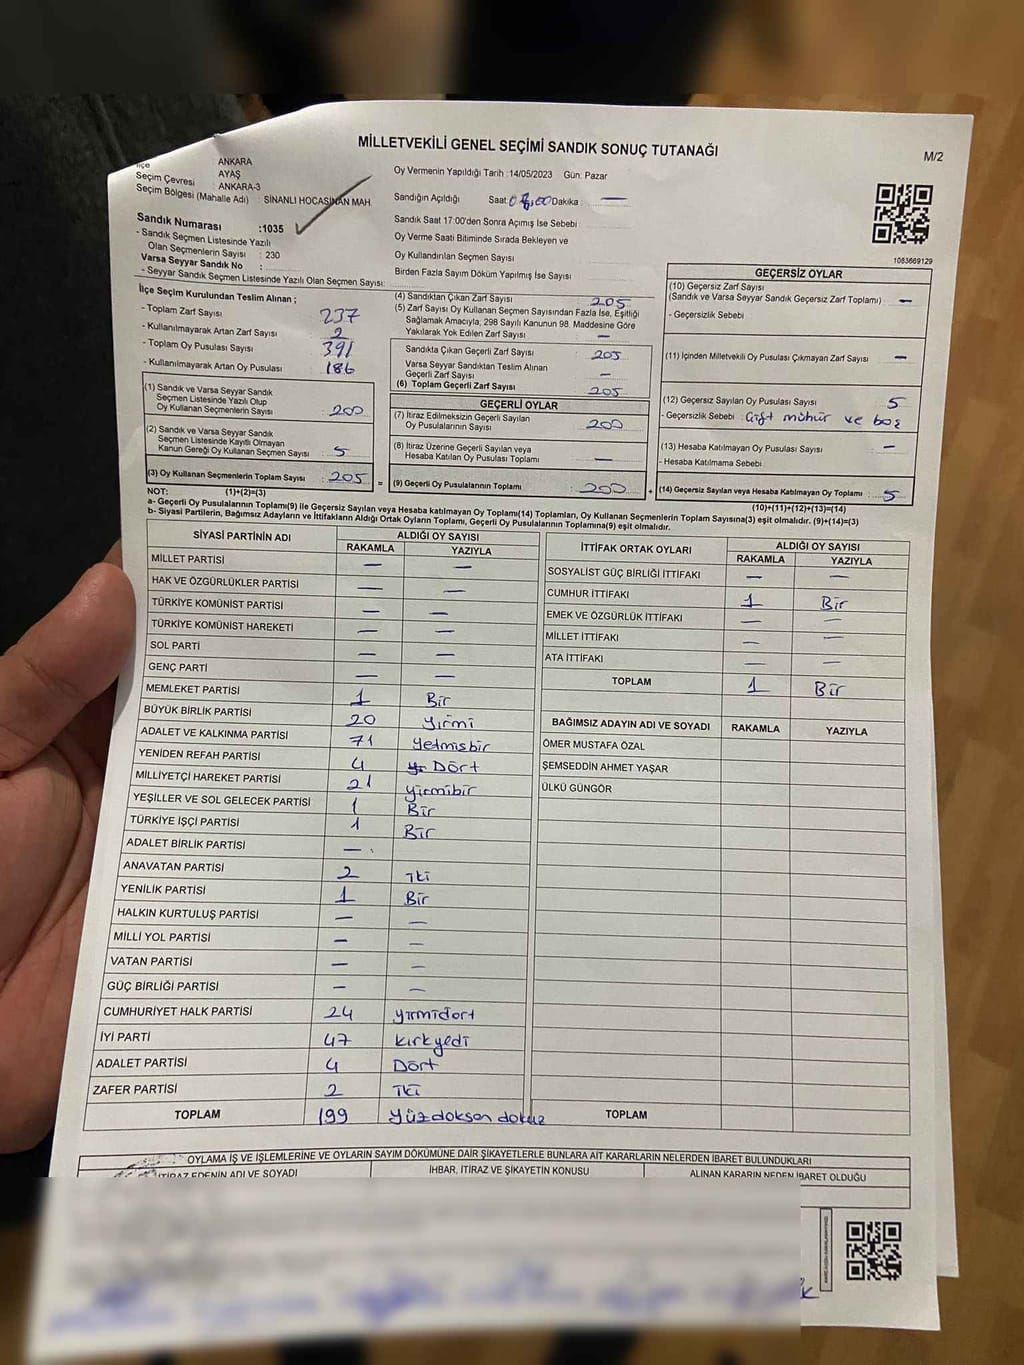 MİLLETVEKİLİ GENEL SEÇİMİ SANDIK SONUÇ TUTANAĞI
M/2
İlçe
ANKARA
AYAŞ
Seçim Çevresi ANKARA-3
Seçim Bölgesi (Mahalle Adı) SİNANLI HOCASİNAN MAH.
Oy Vermenin Yapıldığı Tarih :14/05/2023 Gün: Pazar
Sandığın Açıldığı Saat Dakika : —
Sandık Numarası :1035
- Sandık Seçmen Listesinde Yazılı
Olan Seçmenlerin Sayısı : 230
Varsa Seyyar Sandık No :
- Seyyar Sandık Seçmen Listesinde Yazılı Olan Seçmen Sayısı:
Sandık Saat 17:00'den Sonra Açımış İse Sebebi :
Oy Verme Saati Bitiminde Sırada Bekleyen ve
Oy Kullandırılan Seçmen Sayısı :
Birden Fazla Sayım Döküm Yapılmış İse Sayısı :
1083669129
İlçe Seçim Kurulundan Teslim Alınan ;
- Toplam Zarf Sayısı : 237
- Kullanılmayarak Artan Zarf Sayısı : 2
- Toplam Oy Pusulası Sayısı : 391
- Kullanılmayarak Artan Oy Pusulası : 186
(1) Sandık ve Varsa Seyyar Sandık
Seçmen Listesinde Yazılı Olup
Oy Kullanan Seçmenlerin Sayısı : 200
(2) Sandık ve Varsa Seyyar Sandık
Seçmen Listesinde Kayıtlı Olmayan
Kanun Gereği Oy Kullanan Seçmen Sayısı : 5
(3) Oy Kullanan Seçmenlerin Toplam Sayısı : 205 =
(4) Sandıktan Çıkan Zarf Sayısı : 205
(5) Zarf Sayısı Oy Kullanan Seçmen Sayısından Fazla İse, Eşitliği
Sağlamak Amacıyla, 298 Sayılı Kanunun 98. Maddesine Göre
Yakılarak Yok Edilen Zarf Sayısı : —
Sandıkta Çıkan Geçerli Zarf Sayısı : 205
Varsa Seyyar Sandıktan Teslim Alınan
Geçerli Zarf Sayısı : —
(6) Toplam Geçerli Zarf Sayısı : 205
GEÇERLİ OYLAR
(7) İtiraz Edilmeksizin Geçerli Sayılan
Oy Pusulalarının Sayısı : 200
(8) İtiraz Üzerine Geçerli Sayılan veya
Hesaba Katılan Oy Pusulası Toplamı : —
(9) Geçerli Oy Pusulalarının Toplamı : 200 +
GEÇERSİZ OYLAR
(10) Geçersiz Zarf Sayısı
(Sandık ve Varsa Seyyar Sandık Geçersiz Zarf Toplamı) : —
- Geçersizlik Sebebi :
(11) İçinden Milletvekili Oy Pusulası Çıkmayan Zarf Sayısı : —
(12) Geçersiz Sayılan Oy Pusulası Sayısı : 5
- Geçersizlik Sebebi : çift mühür ve boş
(13) Hesaba Katılmayan Oy Pusulası Sayısı : —
- Hesaba Katılmama Sebebi :
(14) Geçersiz Sayılan veya Hesaba Katılmayan Oy Toplamı : 5
NOT: (1)+(2)=(3)
(10)+(11)+(12)+(13)=(14)
a- Geçerli Oy Pusulalarının Toplamı(9) ile Geçersiz Sayılan veya Hesaba katılmayan Oy Toplamı(14) Toplamları, Oy Kullanan Seçmenlerin Toplam Sayısına(3) eşit olmalıdır. (9)+(14)=(3)
b- Siyasi Partilerin, Bağımsız Adayların ve İttifakların Aldığı Ortak Oyların Toplamı, Geçerli Oy Pusulalarının Toplamına(9) eşit olmalıdır.
SİYASİ PARTİNİN ADI ALDIĞI OY SAYISI
RAKAMLA YAZIYLA
MİLLET PARTİSİ — —
HAK VE ÖZGÜRLÜKLER PARTİSİ — —
TÜRKİYE KOMÜNİST PARTİSİ — —
TÜRKİYE KOMÜNİST HAREKETİ — —
SOL PARTİ — —
GENÇ PARTİ — —
MEMLEKET PARTİSİ 1 Bir
BÜYÜK BİRLİK PARTİSİ 20 yirmi
ADALET VE KALKINMA PARTİSİ 71 yetmişbir
YENİDEN REFAH PARTİSİ 4 Dört
MİLLİYETÇİ HAREKET PARTİSİ 21 yirmibir
YEŞİLLER VE SOL GELECEK PARTİSİ 1 Bir
TÜRKİYE İŞÇİ PARTİSİ 1 Bir
ADALET BİRLİK PARTİSİ —
ANAVATAN PARTİSİ 2 iki
YENİLİK PARTİSİ 1 Bir
HALKIN KURTULUŞ PARTİSİ — —
MİLLİ YOL PARTİSİ — —
VATAN PARTİSİ — —
GÜÇ BİRLİĞİ PARTİSİ — —
CUMHURİYET HALK PARTİSİ 24 yirmidört
İYİ PARTİ 47 kırkyedi
ADALET PARTİSİ 4 Dört
ZAFER PARTİSİ 2 iki
TOPLAM 199 yüzdoksan dokuz
İTTİFAK ORTAK OYLARI ALDIĞI OY SAYISI
RAKAMLA YAZIYLA
SOSYALİST GÜÇ BİRLİĞİ İTTİFAKI — —
CUMHUR İTTİFAKI 1 Bir
EMEK VE ÖZGÜRLÜK İTTİFAKI — —
MİLLET İTTİFAKI — —
ATA İTTİFAKI — —
TOPLAM 1 Bir
BAĞIMSIZ ADAYIN ADI VE SOYADI RAKAMLA YAZIYLA
ÖMER MUSTAFA ÖZAL
ŞEMSEDDİN AHMET YAŞAR
ÜLKÜ GÜNGÖR
TOPLAM
OYLAMA İŞ VE İŞLEMLERİNE VE OYLARIN SAYIM DÖKÜMÜNE DAİR ŞİKAYETLERLE BUNLARA AİT KARARLARIN NELERDEN İBARET BULUNDUKLARI
İTİRAZ EDENİN ADI VE SOYADI İHBAR, İTİRAZ VE ŞİKAYETİN KONUSU ALINAN KARARIN NEDEN İBARET OLDUĞU